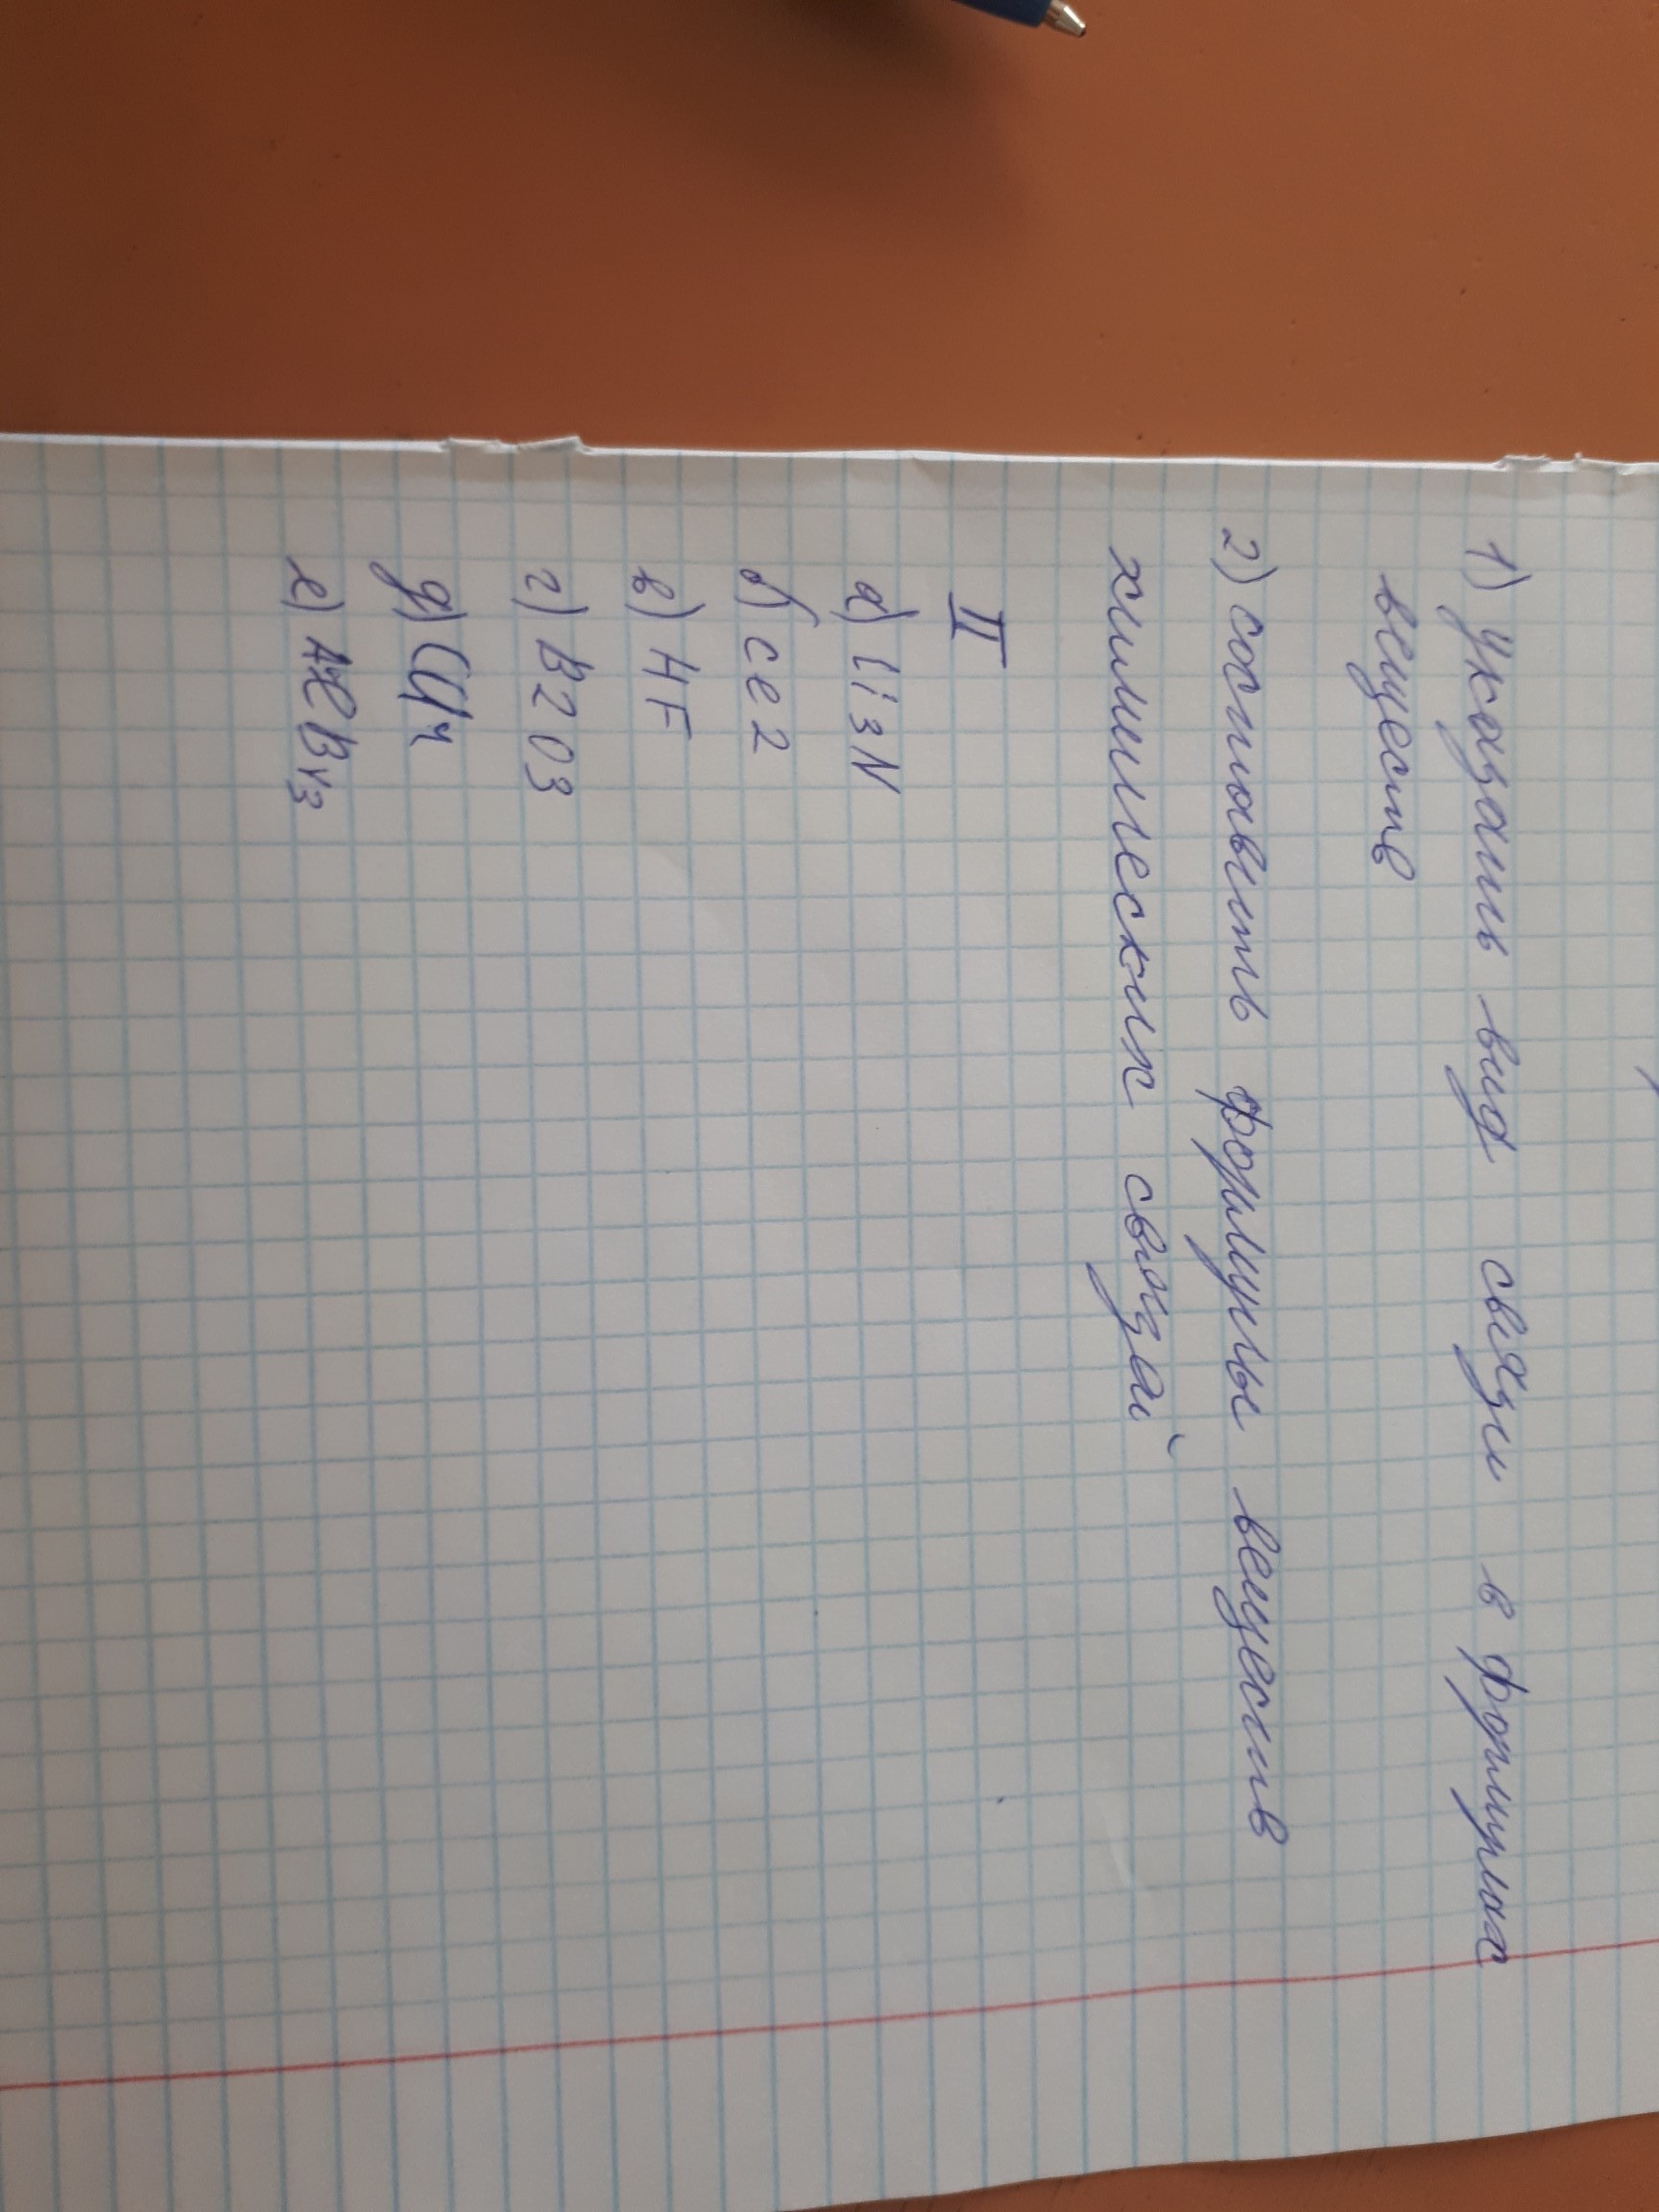 1) Указать вид связи в формулах
веществ
2) составить формулы веществ
химических связай
II
а) Li3N
б) Ce2
в) HF
г) B2O3
е) AlBr3